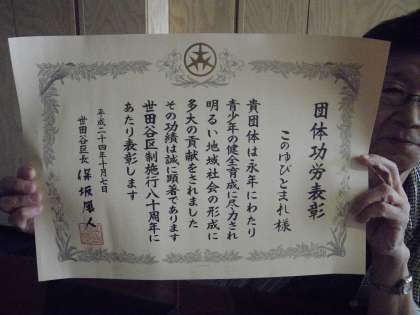 団体功労表彰
このゆびとまれ様
貴団体は永年にわたり
青少年の健全育成に尽力され
明るい地域社会の形成に
多大の貢献をされました
その功績は誠に顕著であります
世田谷区制施行八十周年に
あたり表彰します
平成二十四年十月七日
世田谷区長 保坂展人